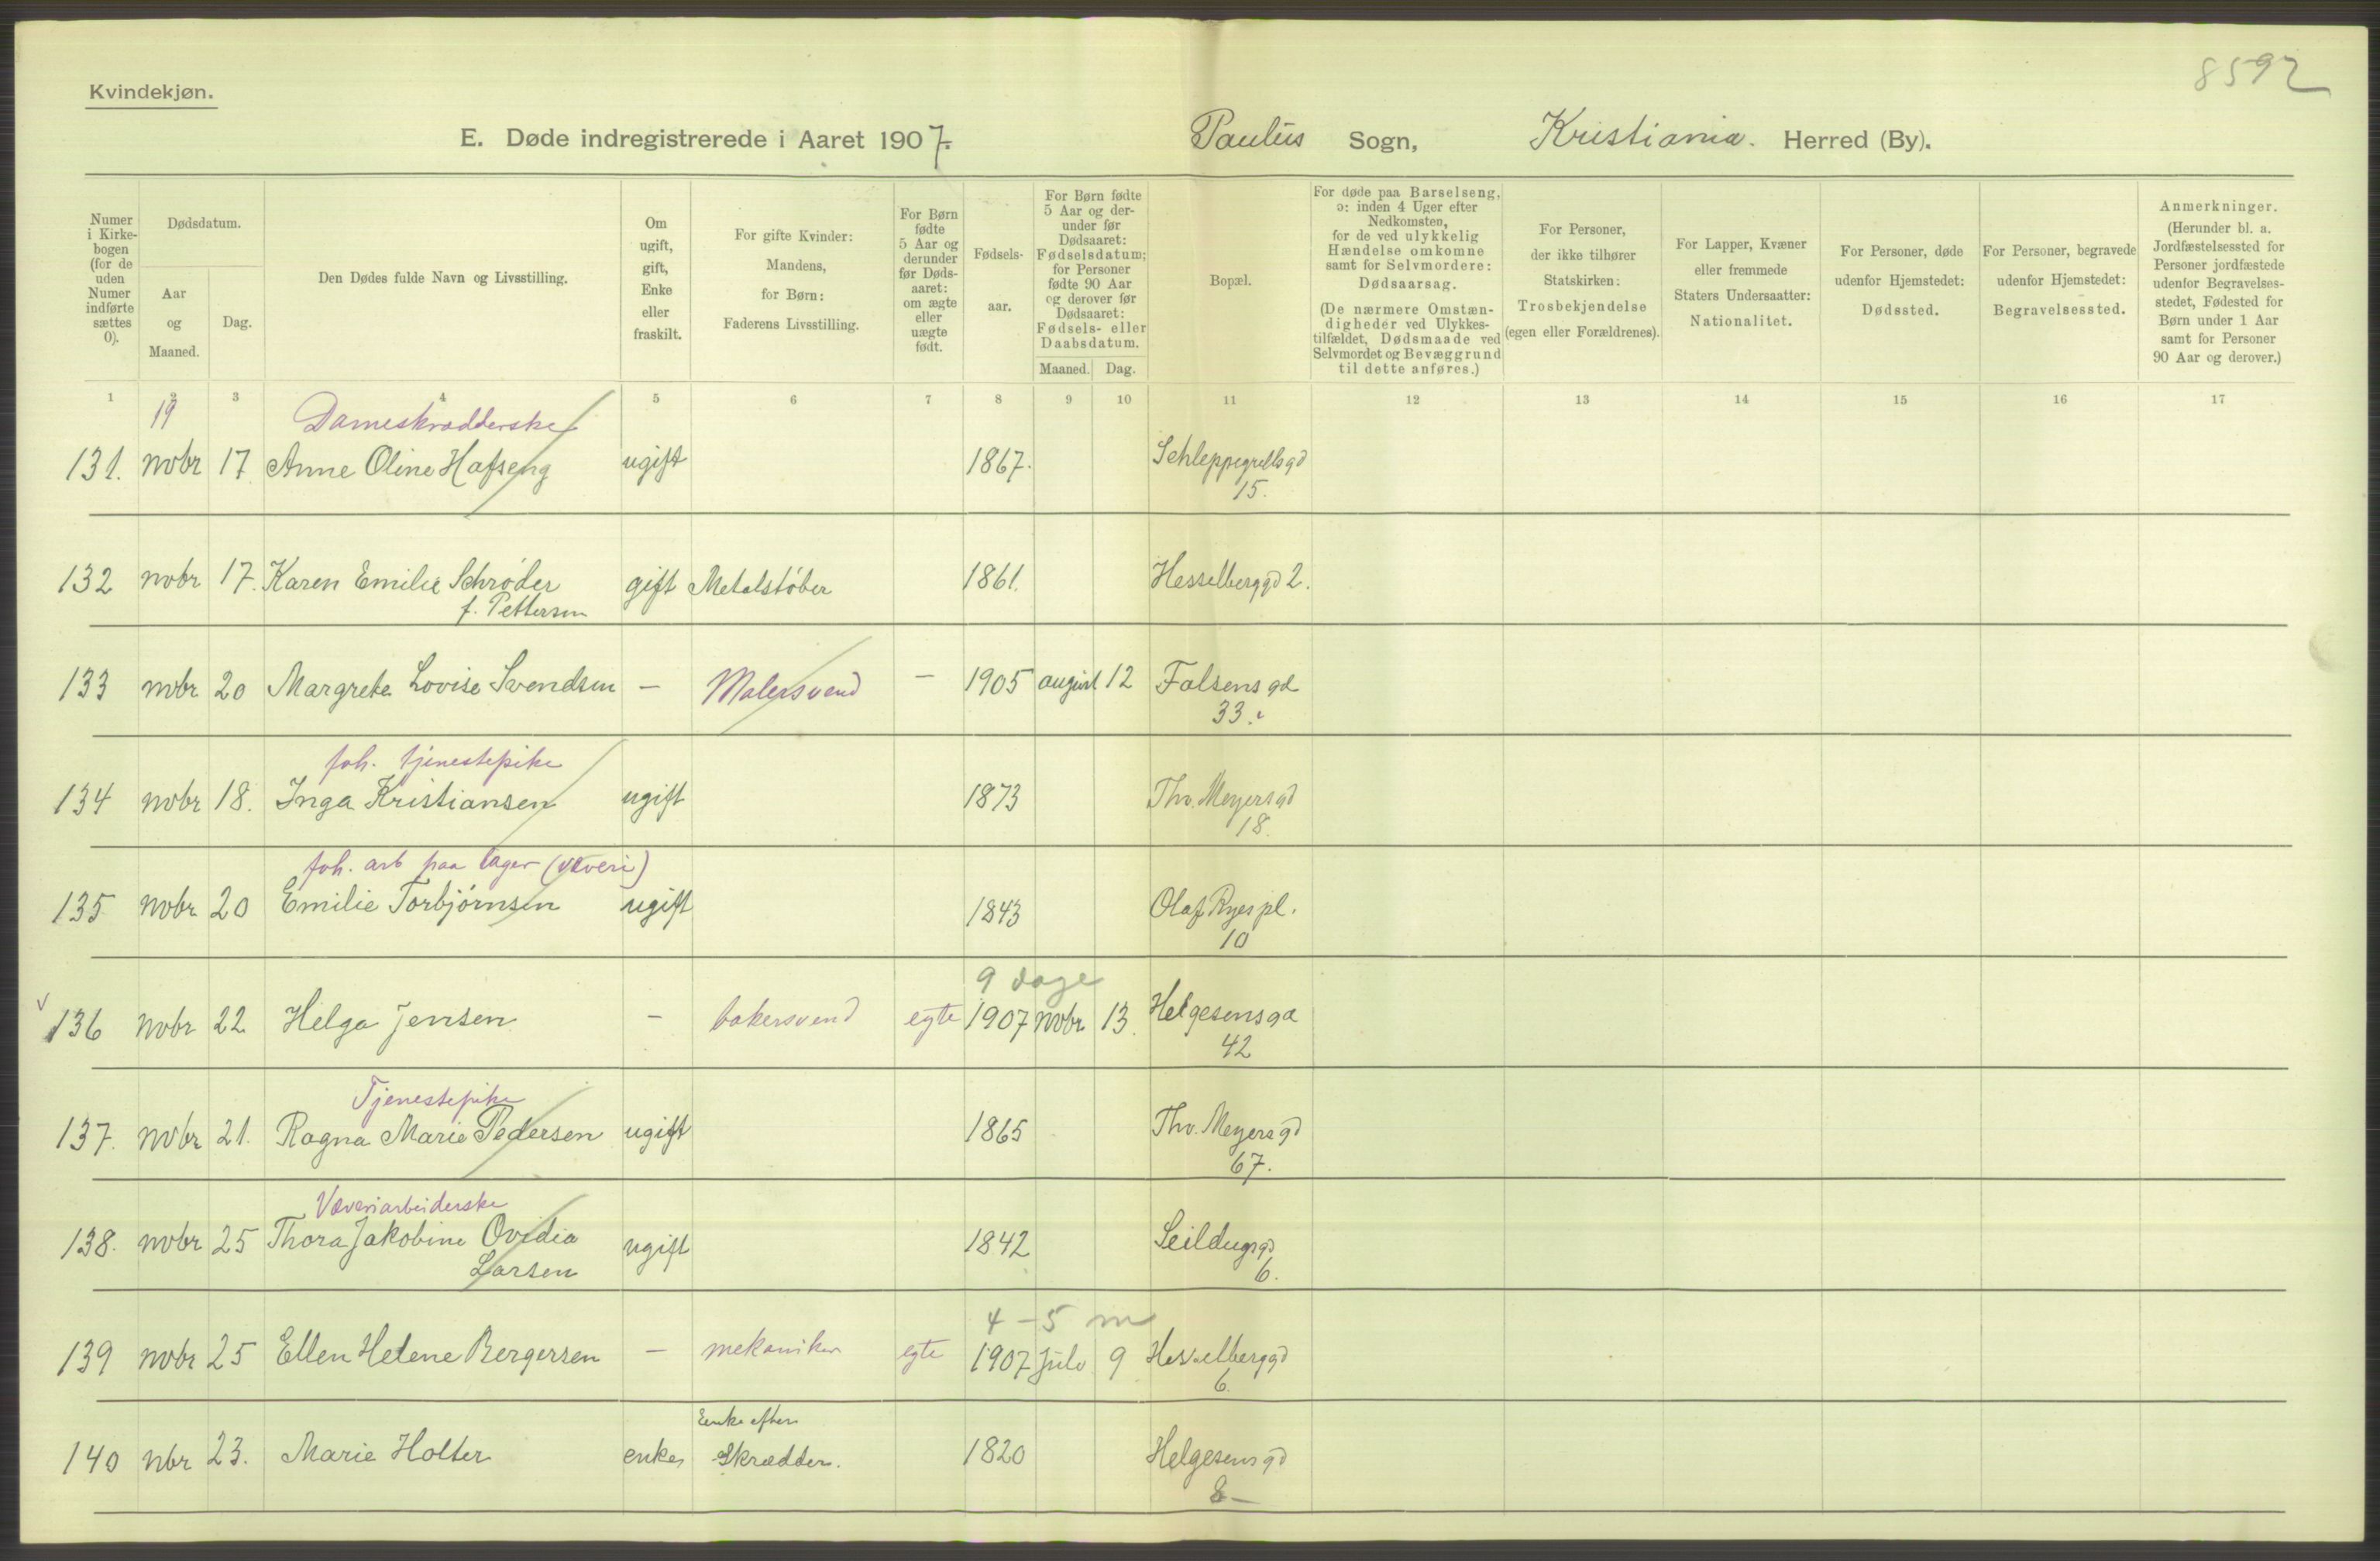 8592
Kvindekjøn.
E. Døde indregistrerede i Aaret 1907. Paulus Sogn, Kristiania. Herred (By).
Numer i Kirkebogen (for de uden Numer indførte sættes 0).
Dødsdatum.
Aar og Maaned.
Dag.
Den Dødes fulde Navn og Livsstilling.
Om ugift, gift, Enke eller fraskilt.
For gifte Kvinder: Mandens, for Børn: Faderens Livsstilling.
For Børn fødte 5 Aar og derunder før Dødsaaret: om ægte eller uægte født.
Fødselsaar.
For Børn fødte 5 Aar og derunder før Dødsaaret: Fødselsdatum; for Personer fødte 90 Aar og derover før Dødsaaret: Fødsels- eller Daabsdatum.
Maaned. Dag.
Bopæl.
For døde paa Barselseng, ɔ: inden 4 Uger efter Nedkomsten, for de ved ulykkelig Hændelse omkomne samt for Selvmordere: Dødsaarsag.
(De nærmere Omstændigheder ved Ulykkestilfældet, Dødsmaade ved Selvmordet og Bevæggrund til dette anføres.)
For Personer, der ikke tilhører Statskirken: Trosbekjendelse (egen eller Forældrenes).
For Lapper, Kvæner eller fremmede Staters Undersaatter: Nationalitet.
For Personer, døde udenfor Hjemstedet: Dødssted.
For Personer, begravede udenfor Hjemstedet: Begravelsessted.
Anmerkninger. (Herunder bl. a. Jordfæstelsessted for Personer jordfæstede udenfor Begravelsesstedet, Fødested for Børn under 1 Aar samt for Personer 90 Aar og derover.)
1 2 3 4 5 6 7 8 9 10 11 12 13 14 15 16 17
19 Dameskrædderske
131. novbr 17 Anne Oline Hafseng ugift 1867. Schleppegrellsgd
15.
132 novbr 17. Karen Emilie Schrøder gift Metalstøber 1861. Hesselberggd 2.
f. Pettersen
133 novbr 20 Margrete Lovise Svendsen — Malersvend — 1905 august 12 Falsensgd
33.
foh. tjenestepike
134 novbr 18. Inga Kristiansen ugift 1873 Thv. Meyersgd
18.
foh. arb paa lager (væveri)
135 novbr 20 Emilie Torbjørnsen ugift 1843 Olaf Ryespl.
10
9 dage
136 novbr 22 Helga Jensen — bakersvend egte 1907 novbr 13. Helgesensgd
42
Tjenestepike
137. novbr 21. Ragna Marie Pedersen ugift 1865 Thv. Meyersgd
67.
Væveriarbeiderske
138. novbr 25 Thora Jakobine Ovidia ugift 1842 Seildugsgd
Larsen 6.
4 – 5 m
139 novbr 25 Ellen Helene Bergersen — mekaniker egte 1907 Juli 9 Hesselberggd
6.
Enke efter
140 nbr 23. Marie Holter enke Skrædder. 1820 Helgesensgd
8 —